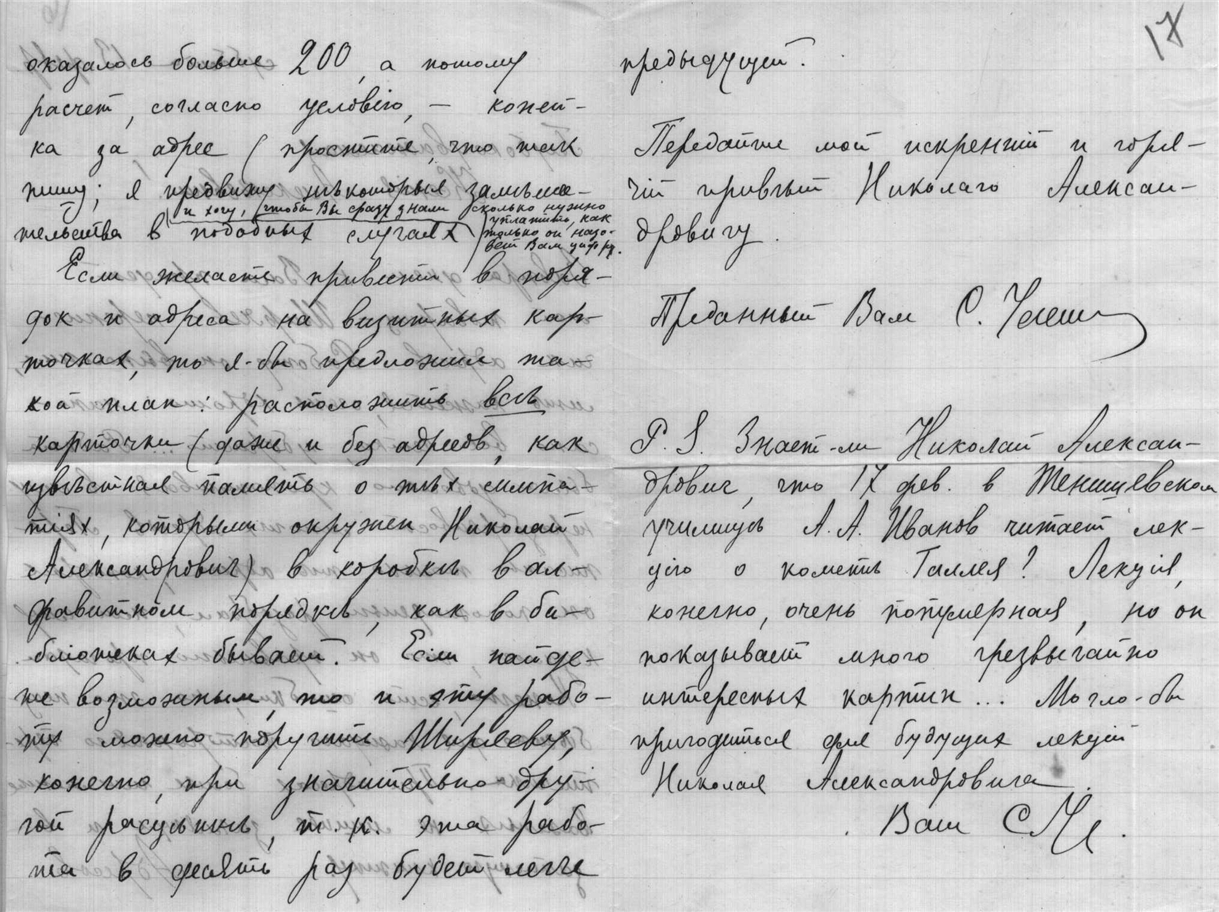 оказалось больше 200, а потому
расчет, согласно условію, – копей-
ка за адрес (простите, что так
пишу; я предвижу нѣкоторыя замѣша-
тельства в подобных случаях
и хочу, чтобы Вы сразу знали сколько нужно
уплатить, как
только он назо-
вет Вам цифру.
Если желаете привести в поря-
док и адреса на визитных кар-
точках, то я-бы предложил та-
кой план: расположить всѣ
карточки (даже и без адресов, как
извѣстная память о тѣх симпа-
тіях, которыми окружен Николай
Александрович) в коробкѣ в ал-
фавитном порядкѣ, как в би-
бліотеках бывает. Если найде-
те возможным, то и эту рабо-
ту можно поручить Ширяеву,
конечно, при значительно дру-
гой расцѣнкѣ, т. к. эта рабо-
та в десять раз будет легче
предыдущей.
17
Передайте мой искренній и горя-
чій привѣт Николаю Алексан-
дровичу.
Преданный Вам С.
P. S. Знает-ли Николай Алексан-
дрович, что 17 фев. в Тенишевском
училищѣ А. А. Иванов читает лек-
цію о кометѣ Галлея? Лекція,
конечно, очень популярная, но он
показывает много чрезвычайно
интересных картин... Могло-бы
пригодиться для будущих лекцій
Николая Александровича.
Ваш С.